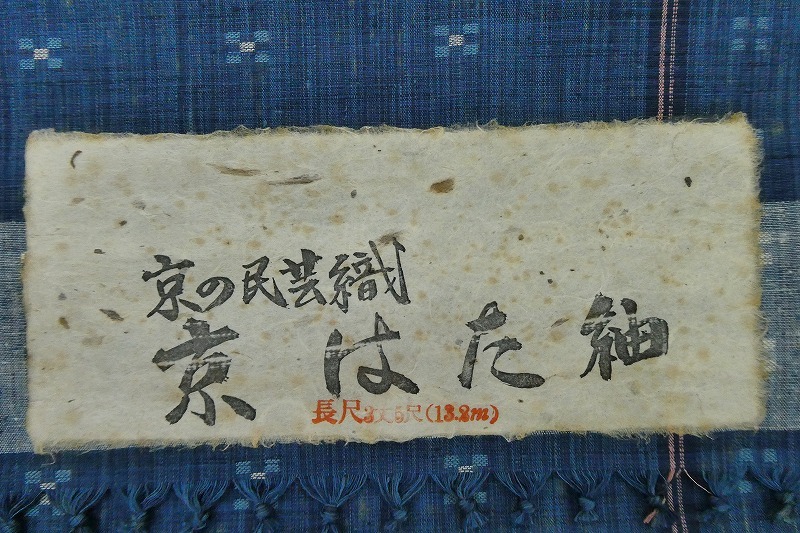 京の民芸織
京はた紬
長尺3丈5尺(13.2m)